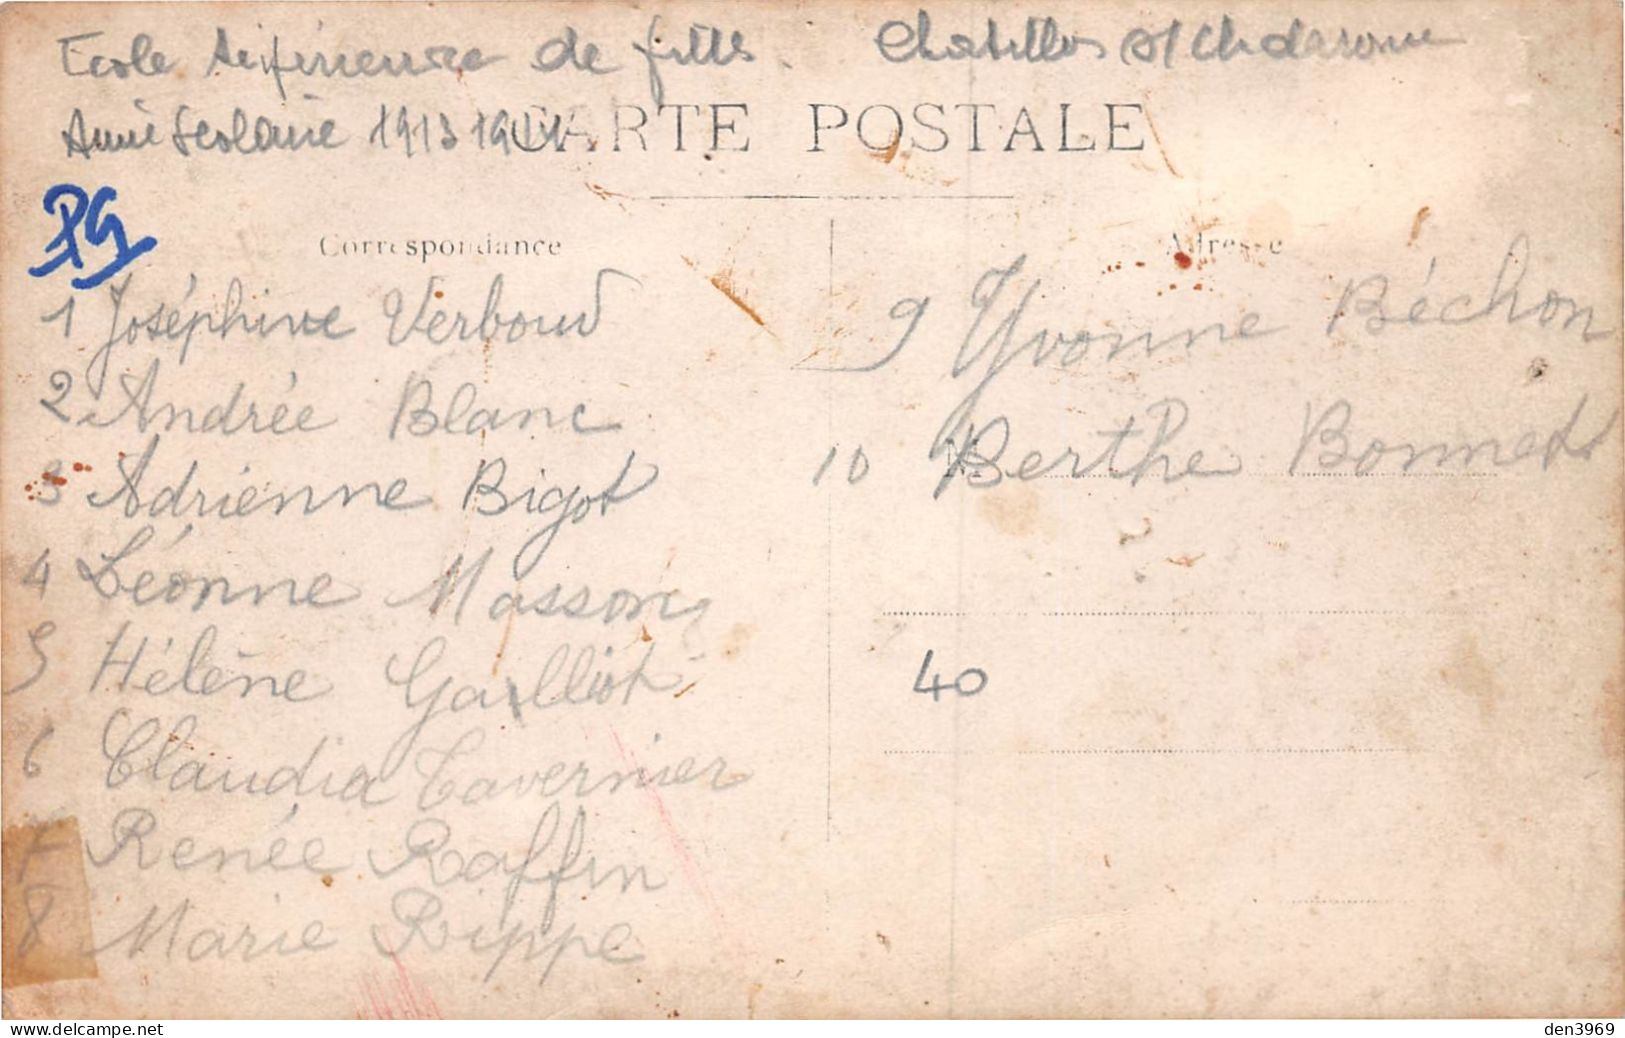 Ecole supérieure de filles. Chatillon s/ Chalaronne
Année Scolaire 1913 1914
CARTE POSTALE
PG
Correspondance
Adresse
1 Joséphine Verboud
2 Andrée Blanc
3 Adrienne Bigot
4 Léonne Masson
5 Hélène Gailliot
6 Claudia Tavernier
7 Renée Raffin
8 Marie Rippe
9 Yvonne Béchon
10 Berthe Bonnet
M
40
den3969